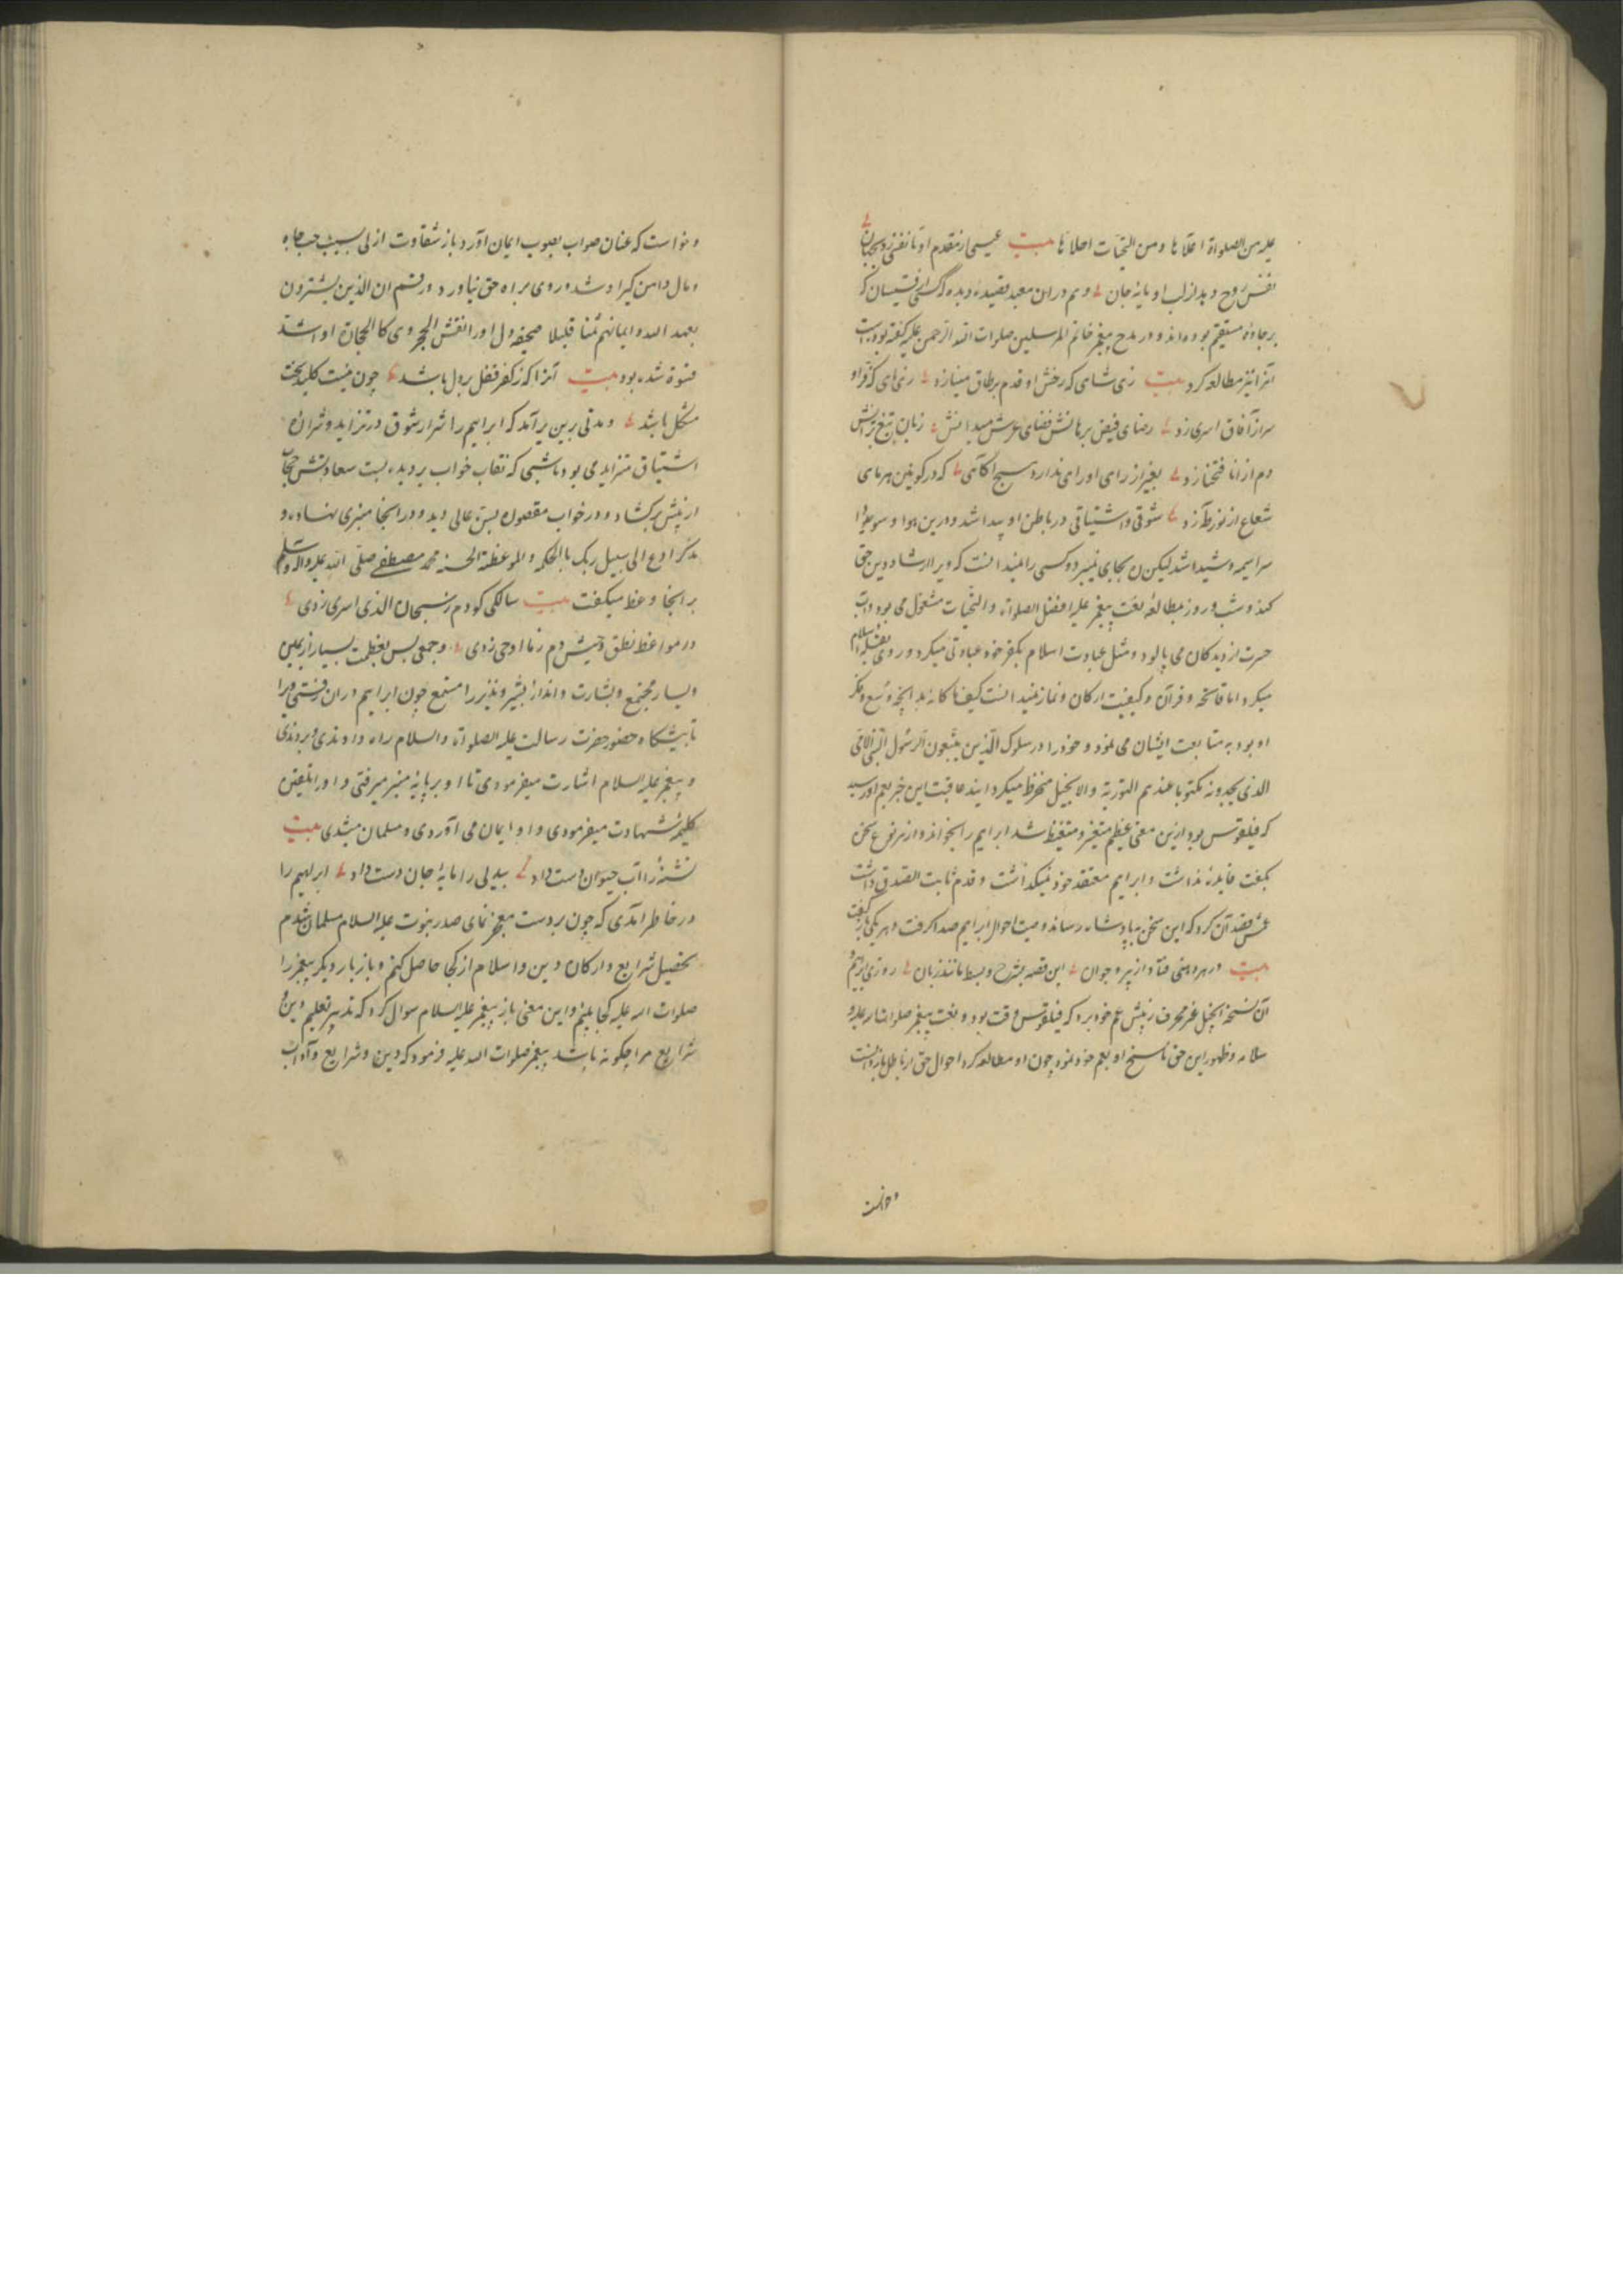 علیه من الصلواة اعلاها ومن التحیات احلاها بیت عیسی از مقدم او تا نفسی زد بجهان
نفس روح دید از لب او مایهٔ جان وهم در ان معبد قصیدهٔ دیده که از قسیسان که
بر جادهٔ مستقیم بوده‌اند و در مدح پیغمبر خاتم المرسلین صلوات الله الرحمن علیه گفته بوده است
آنرا نیز مطالعه کرد بیت زهی شاهی که رخش او قدم بر طاق مینا زد زهی ماهی که فر او
سر از آفاق اسری زد رضای فیض برهانش فضای عرش میدانش زبان تیغ برانش
دم از انا فتحنا زد بغیر از رای او رای ندارد هیچ اکاهی که در کونین هر ماهی
شعاع از نور طه زد شوقی و اشتیاقی در باطن او پیدا شد و در این هوا و سودا
سراسیمه و شیدا شد لیکن ره بجایی نمیبرد و کسی را نمیدانست که ویرا ارشاد دین حق
کند و شب و روز بمطالعهٔ نعت پیغمبر علیه افضل الصلواة والتحیات مشغول می بود و اب
حسرت از دیدکان می پالود و مثل عبادت اسلام بکفر خود عبادتی میکرد و روی بقبلهٔ اسلام
میکرد اما فاتحه و قرآن و کیفیت ارکان و نماز نمیدانست کیف ما کان بدانچه وسع و فکر
او بود به متابعت ایشان می نمود و خود را در سلوک الذین یتبعون الرسول النبی الامی
الذی یجدونه مکتوبا عندهم التوریة والانجیل منخرط میکردانید عاقبت این خبر بعم او رسید
که فیلقوس بود ازین معنی عظیم متغیر و متغیظ شد ابراهیم را بخواند و از هر نوع سخن
بگفت فایده نداشت و ابراهیم معتقد خود نمیگذاشت و قدم ثابت الصدق داشت
عمش قصد آن کرد که این سخن به پادشاه رساند وصیت احوال ابراهیم صدا گرفت و هر یکی باز گفت
بیت در هر دهنی فتاد از پیر و جوان این قصه بشرح و بسط مانند زبان روزی ابراهیم
آن نسخهٔ انجیل غیر محرف را پیش عم خود برد که فیلقوس وقت بود و نعت پیغمبر صلوات الله علیه و
سلامه و ظهور این حق ناسخ او بعم خود نمود چون او مطالعه کرد احوال حق از باطل باز دانست
وخواست
وخواست که عنان صواب بصوب ایمان آورد باز شقاوت ازلی بسبب حب جاه
ومال دامن گیر او شد و روی براه حق نیاورد و رقم ان الذین یشترون
بعهد الله وایمانهم ثمنا قلیلا صحیفه دل او را نقش الحجر وی کالحجارة او اشد
قسوة شده بود بیت آنرا که ز کفر قفل بر دل باشد چون نیست کلید بخت
مشکل باشد ومدتی برین برآمد که ابراهیم را شرار شوق در تزاید و شراره
اشتیاق متزاید می بود تا شبی که نقاب خواب بر دیده بست سعادتش حجاب
از پیش برکشاد و در خواب مقصوره بس عالی دید و در انجا منبری نهاده و
مذکر ادع الی سبیل ربک بالحکمة والموعظة الحسنه محمد مصطفی صلی الله علیه واله وسلم
بر انجا وعظ میگفت بیت سالکی کو دم ز سبحان الذی اسری زدی
در مواعظ نطق خویش دم ز ما اوحی زدی وجمعی بس بعظمت بسیار از یمین
ویسار مجتمع وبشارت وانذار بشیر ونذیر را مستمع چون ابراهیم در ان رفتی ویرا
تا پیشگاه حضور حضرت رسالت علیه الصلواة والسلام راه دادندی و بردندی
و پیغمبر علیه السلام اشارت میفرمودی تا او بر پایهٔ منبر میرفتی و او را تلقین
کلمهٔ شهادت میفرمودی و او ایمان می آوردی و مسلمان میشدی بیت
تشنه را آب حیوان دست داد بیدلی را مایهٔ جان دست داد ابراهیم را
در خاطر آمدی که چون بر دست معجز نمای صدر نبوت علیه السلام مسلمان شدم
تحصیل شرایع وارکان دین واسلام از کجا حاصل کنم و باز بار دیگر پیغمبر را
صلوات الله علیه کجا بینم و این معنی باز پیغمبر علیه السلام سوال کرد که تدبیر تعلیم دین و
شرایع مرا چگونه باشد پیغمبر صلوات الله علیه فرمود که دین و شرایع و آداب